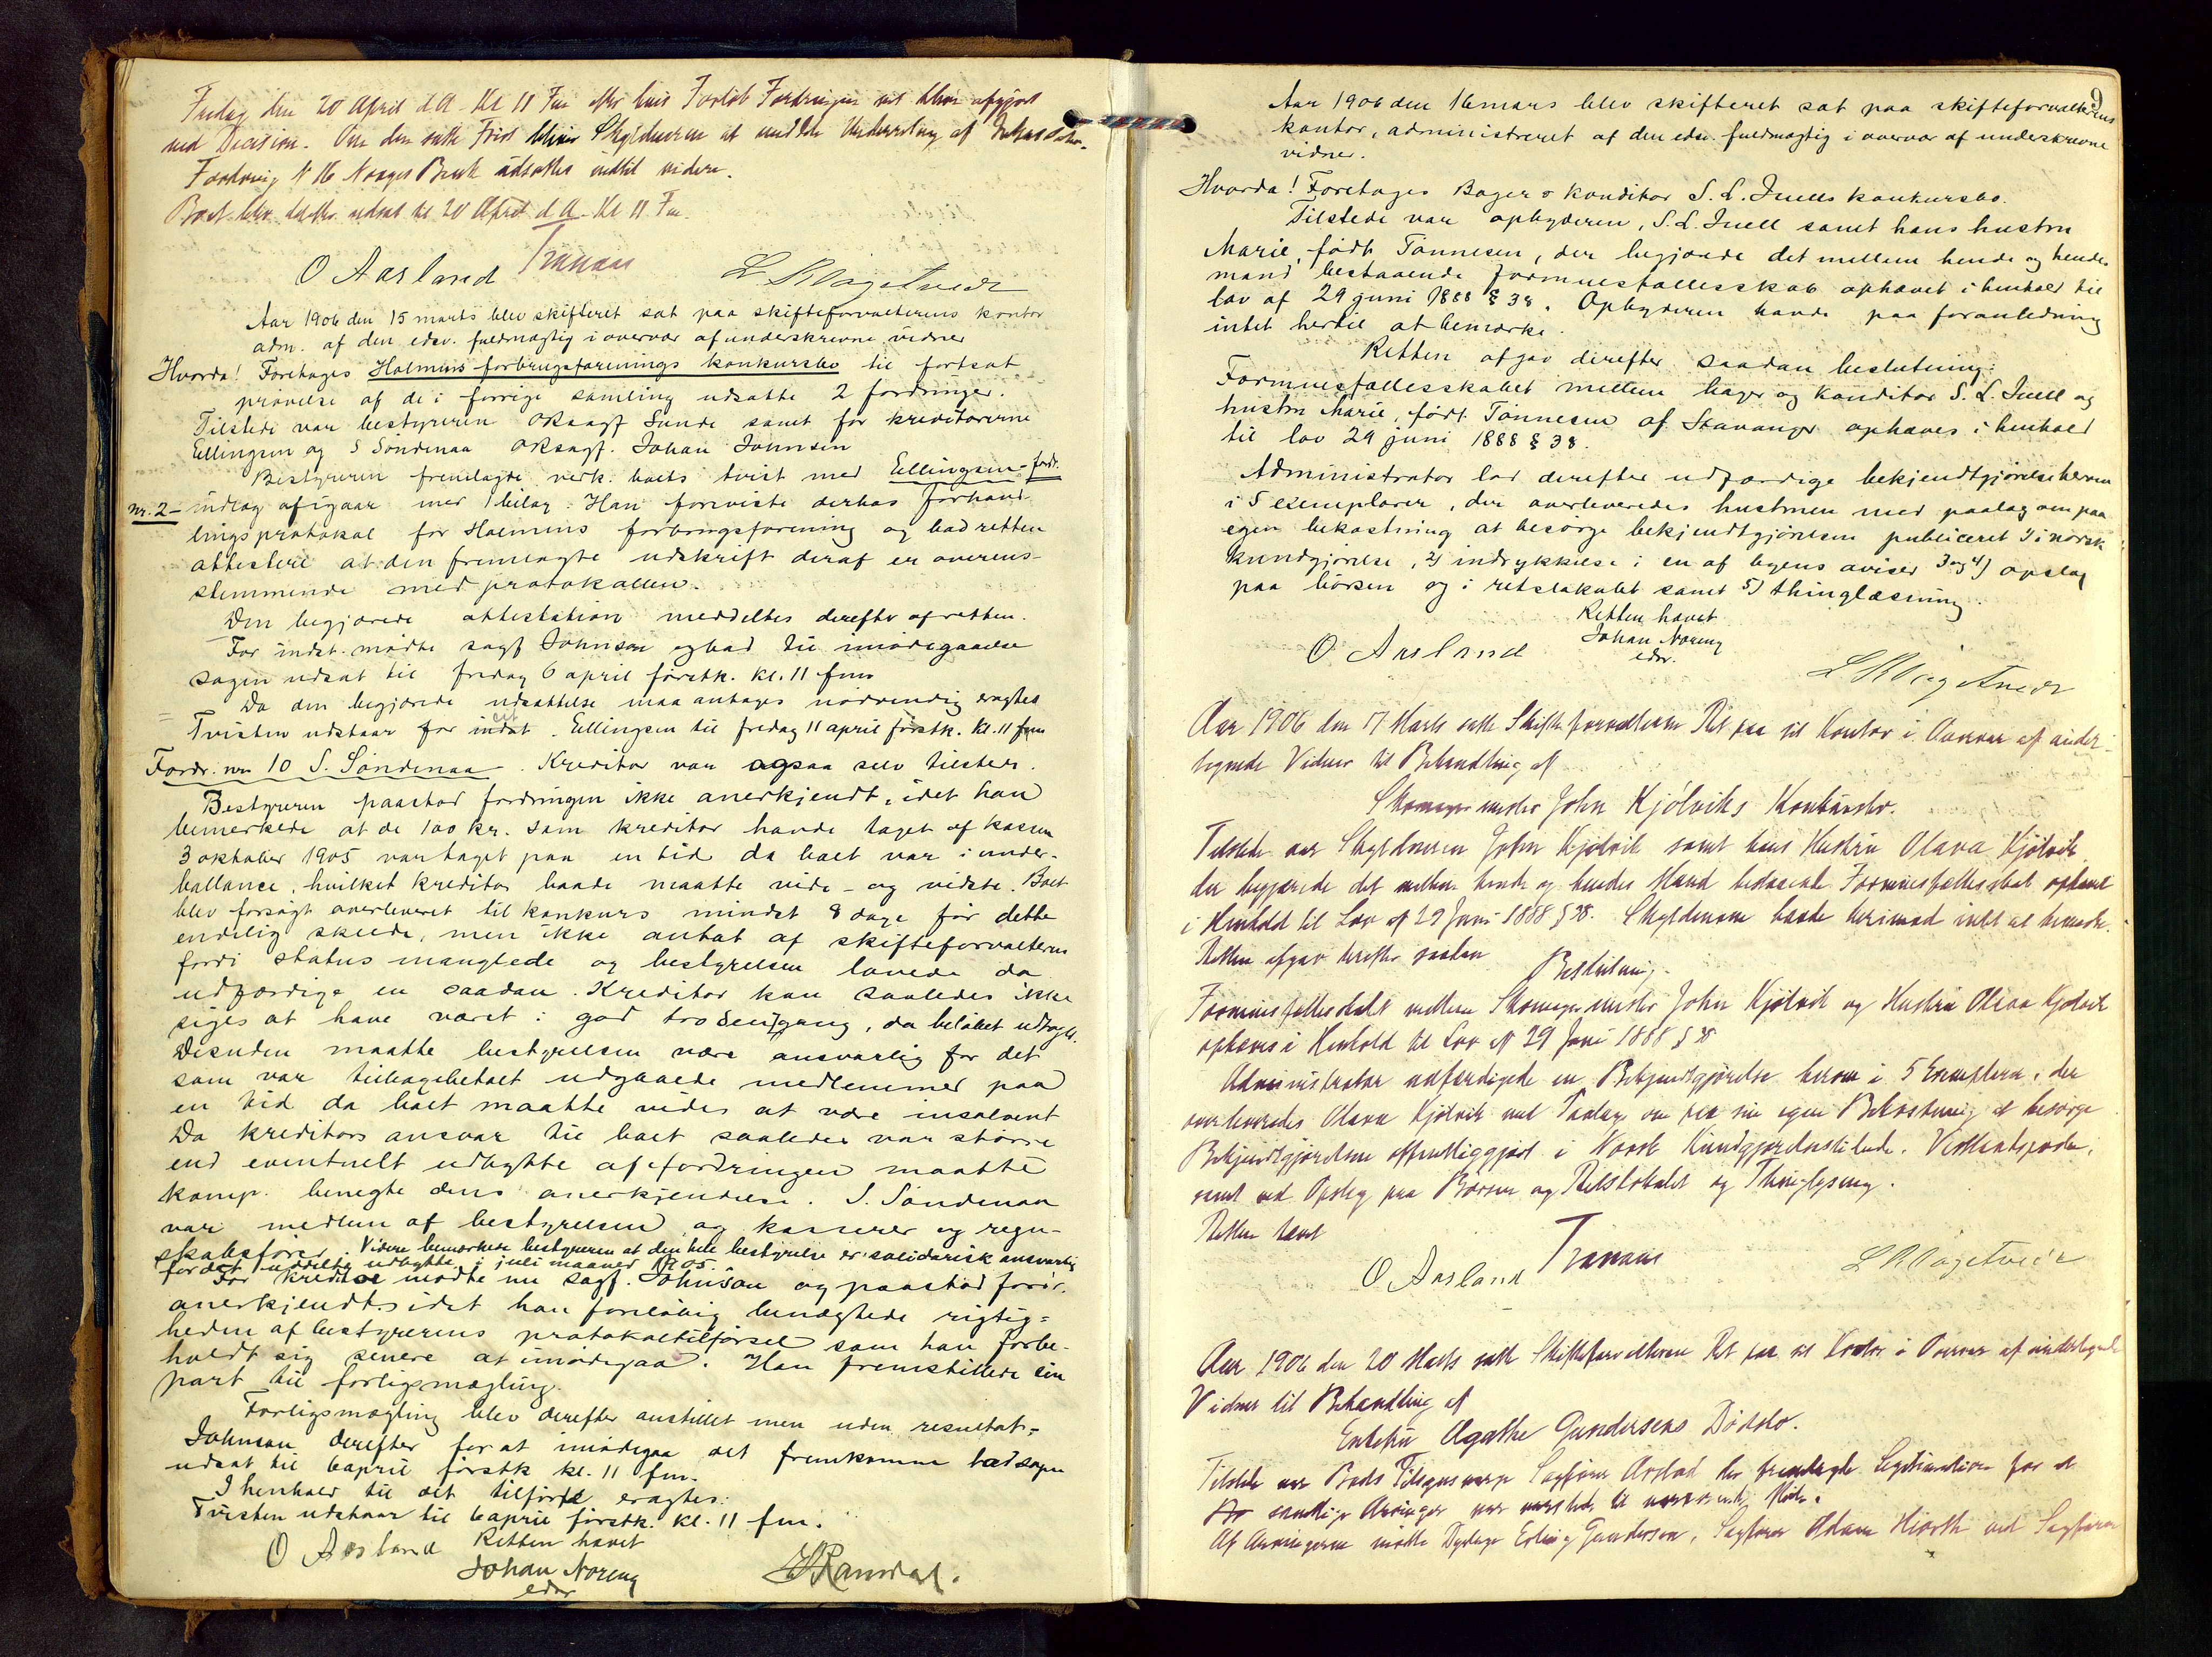 Fredag den 20 April d A. Kl 11 Fm efter hvis Forløb Fordringen vil blive afgjort
ved Decision. Om den satte Frist bliver Skyldneren at meddele Underretning af
Fordring N 16 Norges Bank udsættes indtil videre.
Boet blev derefter udsat til 20 April d A. Kl 11 Fm.
O Aasland Tranaas L R Vagetveit
Aar 1906 den 15 marts blev skifteret sat paa skifteforvalterens kontor
adm. af den edsv. fuldmægtig i overvær af underskrevne vidner
Hvorda! Foretages Holmens forbrugsforenings konkursbo til fortsat
prøvelse af de i forrige samling udsatte 2 fordringer.
Tilstede var bestyreren Oksagf Sunde samt for kreditorerne
Ellingsen og S Søndenaa Oksagf. Johan Johnsen
Bestyreren fremlagte vedk. boets tvist med Ellingsen fordr.
nr. 2 – indlæg af igaar med 1 bilag. Han foreviste derhos forhand-
lingsprotokol for Holmens forbrugsforening og bad retten
attestere at den fremlagte udskrift deraf er overens-
stemmende med protokollen.
Den begjærede attestation meddeltes derefter af retten.
For indst. mødte sagf Johnson og bad til imødegaaelse
sagen udsat til fredag 6 april førstk. kl. 11 fm.
Da den begjærede udsættelse maa antages nødvendig eragtes
Tvisten udstaar for indst. Ellingsen til fredag 11 april førstk. kl. 11 fm
Fordr. nr 10 S. Søndenaa. Kreditor var ogsaa selv tilstede.
Bestyreren paastod fordringen ikke anerkjendt, idet han
bemerkede at de 100 kr. som kreditor havde taget af kassen
3 oktober 1905 var taget paa en tid da boet var i under-
ballance, hvilket kreditor baade maatte vide – og vidste. Boet
blev forsøgt overleveret til konkurs mindst 8 dage før dette
endelig skede, men ikke antat af skifteforvalteren
fordi status manglede og bestyrelsen lovede da
udfærdige en saadan. Kreditor kan saaledes ikke
siges at have været i god tro dengang, da beløbet udtoges.
Desuden maatte bestyrelsen være ansvarlig for det
som var tilbagebetalt udgaaede medlemmer paa
en tid da boet maatte vides at være insolvent
Da kreditors ansvar til boet saaledes var større
end eventuelt udbytte af fordringen maatte
komp. benegte dens anerkjendelse. S. Søndenaa
var medlem af bestyrelsen og kasserer og regn-
skabsfører. Videre bemærkede bestyreren at den hele bestyrelse er solidarisk ansvarlig
for det uddelte udbytte i juli maaned 1905.
For kreditor mødte nu sagf. Johnson og paastod fordr.
anerkjendt idet han foreløbig benægtede rigtig-
heden af bestyrerens protokoltilførsel som han forbe-
holdt sig senere at imødegaa. Han fremstillede sin
part til forligsmægling.
Forligsmægling blev derefter anstillet men uden resultat.
Johnson derefter for at imødegaa det fremkomne bad sagen
udsat til 6 april førstk kl. 11 fm.
I henhold til det tilførte eragtes:
Tvisten udstaar til 6 april førstk. kl. 11 fm.
Retten hævet
O Aasland Johan Noreng
edsv
H Ramdal.
9
Aar 1906 den 16 mars blev skifteret sat paa skifteforvalterens
kontor, administreret af den edsv. fuldmægtig i overvær af underskrevne
vidner.
Hvorda! Foretages Bager & konditor S. L. Juells konkursbo.
Tilstede var opbyderen, S. L. Juell samt hans hustru
Marie, født Tønnesen, der begjærede det mellem hende og hendes
mand bestaaende formuesfællesskab ophævet i henhold til
lov af 29 juni 1888 § 38. Opbyderen havde paa foranledning
intet hertil at bemærke.
Retten afgav derefter saadan beslutning:
Formuesfællesskabet mellem bager og konditor S. L. Juell og
hustru Marie, født Tønnesen af Stavanger ophæves i henhold
til lov 29 juni 1888 § 38.
Administrator lod derefter udfærdige bekjendtgjørelse herom
i 5 exemplarer, der overleveredes hustruen med paalæg om paa
egen bekostning at besørge bekjendtgjørelsen publiceret 1) i norsk
kundgjørelse, 2) indrykkelse i en af byens aviser 3 og 4) opslag
paa børsen og i retslokalet samt 5) thinglæsning.
Retten hævet
O Aasland Johan Noreng
edsv.
L R Vagetveit
Aar 1906 den 17 Marts satte Skifteforvalteren Ret paa sit Kontor i Overvær af under-
tegnede Vidner til Behandling af
Skomagermester John Kjølviks Konkursbo.
Tilstede var Skyldneren John Kjølvik samt hans Hustru Olava Kjølvik
der begjærede det mellem hende og hendes Mand bestaaende Formuesfællesskab ophævet
i Henhold til Lov af 29 Juni 1888 § 38. Skyldneren havde herimod intet at bemærke.
Retten afgav derefter saadan
Beslutning.
Formuesfællesskabet mellem Skomagermester John Kjølvik og Hustru Olava Kjølvik
ophæves i Henhold til Lov af 29 Juni 1888 § 38
Administrator udfærdigede en Bekjendtgjørelse herom i 5 Exemplarer, der
overleveredes Olava Kjølvik med Paalæg om paa sin egen Bekostning at besørge
Bekjendtgjørelsen offentliggjort i Norsk Kundgjørelsestidende, Vestlandsposten,
samt ved Opslag paa Børsen og Retslokalet og Thinglysning.
Retten hævet
O Aasland Tranaas L R Vagetveit
Aar 1906 den 20 Marts satte Skifteforvalteren Ret paa sit Kontor i Overvær af undertegnede
Vidner til Behandling af
Enkefru Agathe Gundersens Dødsbo.
Tilstede var Boets Sagfører Arstad der fremlagde Legitimation for at
samtlige Arvinger var varslede til nærværende Møde.
Af Arvingerne mødte Erling Gundersen, Sagfører Adam Hiorth ved Sagfører